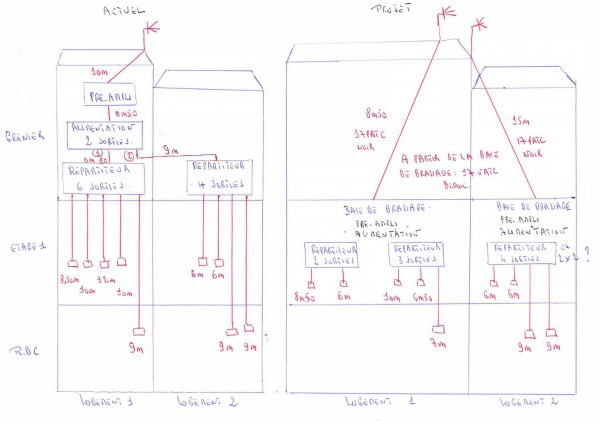 ACTUEL
10m
PRE.AMPLI
0m50
GRENIER
ALIMENTATION
2 SORTIES
①
②
9m
REPARTITEUR
6 SORTIES
REPARTITEUR
4 SORTIES
ETAGE 1
8,50m
10m
12m
10m
6m
6m
9m
9m
9m
R.DC
LOGEMENT 1
LOGEMENT 2
PROJET
8m50
17PATC
NOIR
15m
17PATC
NOIR
A PARTIR DE LA BAIE
DE BRASSAGE : 17 VATC
BLANC
BAIE DE BRASSAGE
PRE.AMPLI
ALIMENTATION
BAIE DE BRASSAGE
PRE.AMPLI
ALIMENTATION
REPARTITEUR
2 SORTIES
REPARTITEUR
3 SORTIES
REPARTITEUR
4 SORTIES
OU
2 x 2 ?
8m50
6m
10m
6m50
6m
6m
7m
9m
9m
LOGEMENT 1
LOGEMENT 2